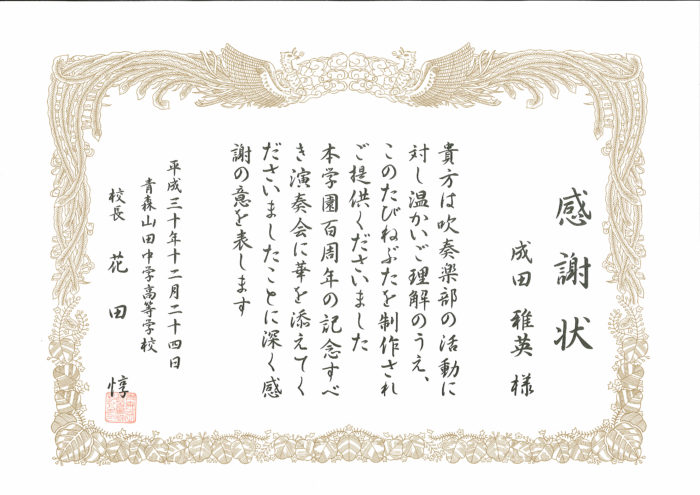 感謝状
成田雅英様
貴方は吹奏楽部の活動に
対し温かいご理解のうえ、
このたびねぶたを制作され
ご提供くださいました
本学園百周年の記念すべ
き演奏会に華を添えてく
ださいましたことに深く感
謝の意を表します
平成三十年十二月二十四日
青森山田中学高等学校
校長 花田 惇